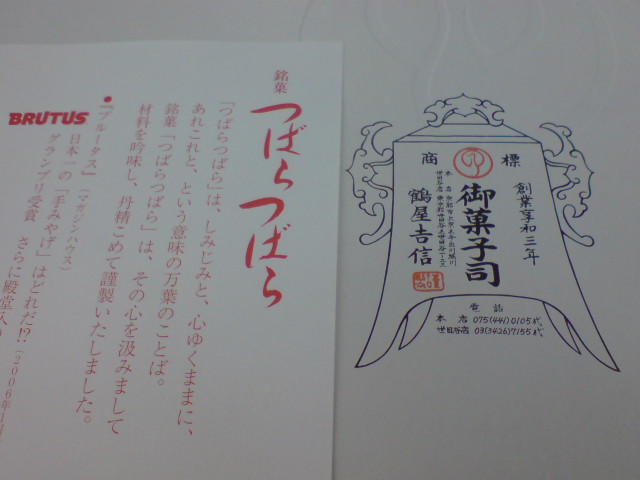 銘菓
つばらつばら
「つばらつばら」は、しみじみと、心ゆくままに、
あれこれと、という意味の万葉のことば。
銘菓「つばらつばら」は、その心を汲みまして
材料を吟味し、丹精こめて謹製いたしました。
●『ブルータス』(マガジンハウス)
日本一の「手みやげ」はどれだ!?
グランプリ受賞 さらに殿堂入り(2006年1月
BRUTUS
商標
創業享和三年
御菓子司
鶴屋吉信
本店 京都市上京区今出川堀川
世田谷店 東京都世田谷区世田谷
電話
本店 075(441)0105代
世田谷店 03(3426)7155代